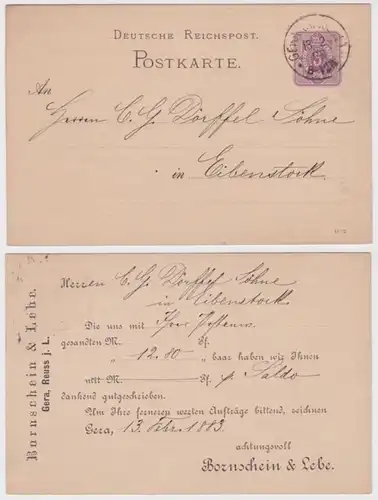 DEUTSCHE REICHSPOST.
POSTKARTE.
An
Herren C. G. Dörffel Söhne
in Eibenstock.
Bornschein & Lebe.
Gera, Reuss j. L.
Herren C. G. Dörffel Söhne
in Eibenstock
Die uns mit Ihrer
gesandten M. Pf.
" 12.80 " baar haben wir Ihnen
M. Pf. p. Saldo
dankend gutgeschrieben.
Um Ihre ferneren werten Aufträge bittend, zeichnen
Gera, 13. Febr. 1883.
achtungsvoll
Bornschein & Lebe.